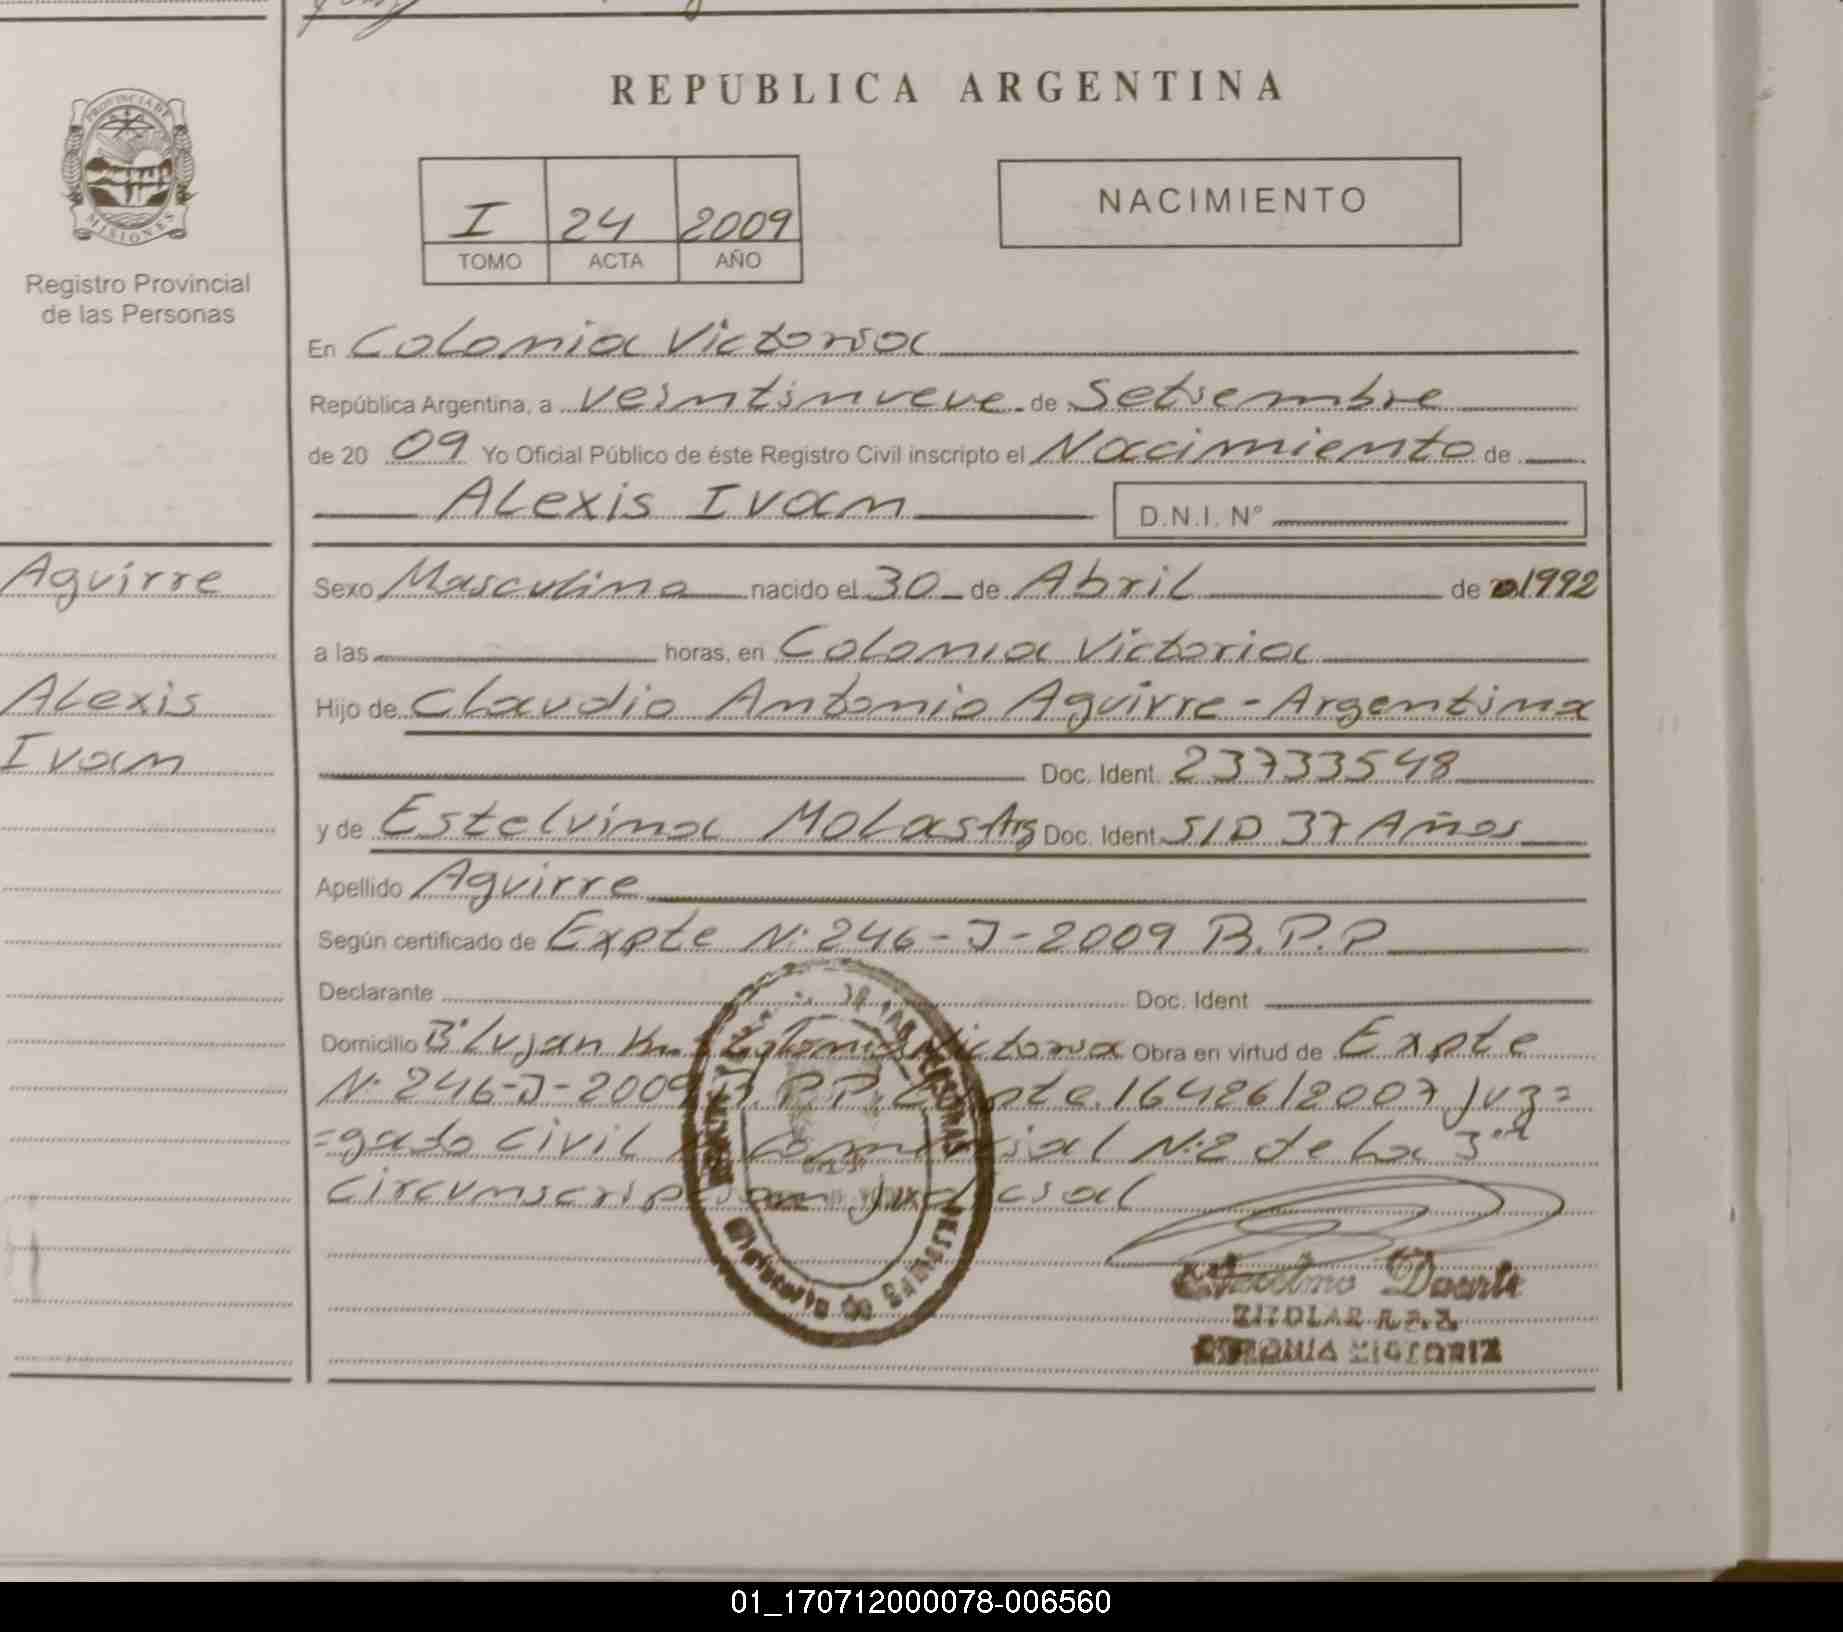 REPUBLICA ARGENTINA
PROVINCIA DE
MISIONES
Registro Provincial
de las Personas
I 24 2009
TOMO ACTA AÑO
NACIMIENTO
En Colonia Victoria
República Argentina, a veintinueve de Setiembre
de 20 09 Yo Oficial Público de éste Registro Civil inscripto el Nacimiento de
Alexis Ivan
D.N.I. N°
Aguirre
Alexis
Ivan
Sexo Masculino nacido el 30 de Abril de 1992
a las horas, en Colonia Victoria
Hijo de Claudio Antonio Aguirre - Argentina
Doc. Ident. 23733548
y de Estelvina Molas Arg Doc. Ident. S/D 37 Años
Apellido Aguirre
Según certificado de Expte N: 246-J-2009 R.P.P
Declarante Doc. Ident
Domicilio B: Lujan Km Colonia Victoria Obra en virtud de Expte
N: 246-J-2009 R.P.P Expte. 16426/2007 Juz=
=gado Civil Comercial N:2 de La 3ra
Circunscripcion Judicial
Ministerio de Gobierno
Anselmo Duarte
TITULAR R.P.P.
COLONIA VICTORIA
01_170712000078-006560